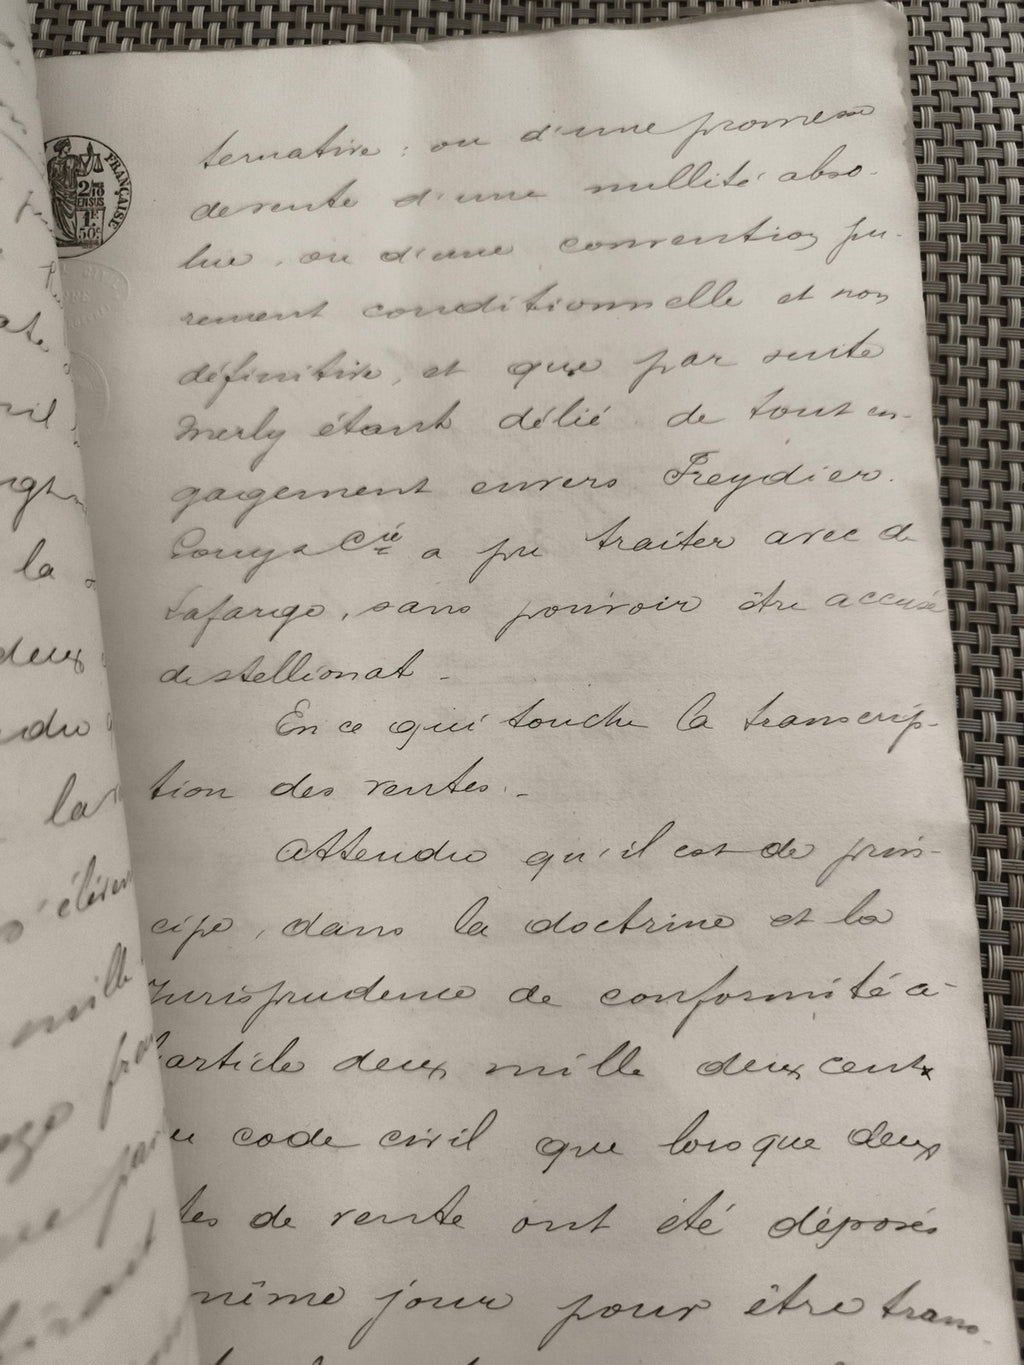 FRANÇAISE
2/10
EN SUS
1F
50c
ternative : ou d'une promesse
de vente d'une nullité abso-
lue, ou d'une convention pu-
rement conditionnelle et non
définitive, et que par suite
Merly étant délié de tout en-
gagement envers Freydier.
Gouy & Cie a pu traiter avec de
Lafarge, sans pouvoir être accusé
de stellionat -
En ce qui touche la transcrip-
tion des ventes. -
Attendu qu'il est de prin-
cipe, dans la doctrine et la
Jurisprudence de conformité à
l'article deux mille deux cent
u code civil que lorsque deux
tes de vente ont été déposés
même jour pour être trans-